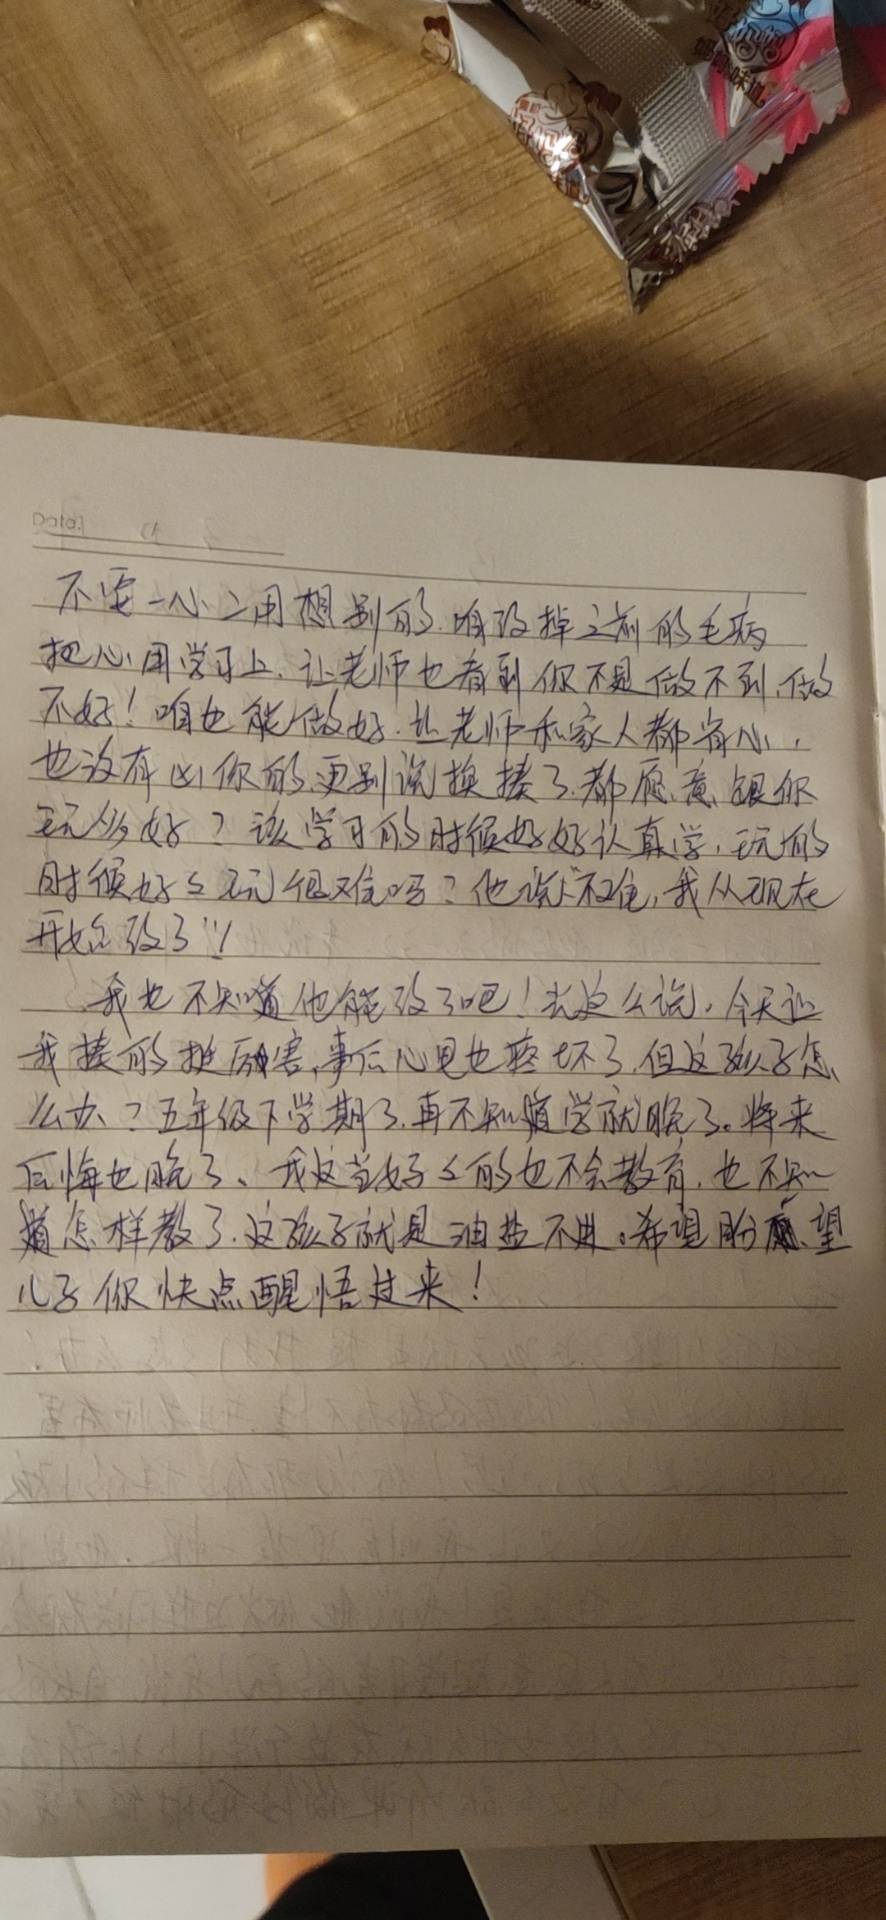 好妈妈
妈妈味道
Date.
不要一心二用想别的.咱改掉之前的毛病
把心用学习上.让老师也看到你不是做不到,做
不好！咱也能做好.让老师和家人都省心,
也没有凶你的,更别说换揍了.都愿意跟你
玩多好？该学习的时候好好认真学.玩的
时候好好玩很难吗？他说不难,我从现在
开始改了!!!
我也不知道他能改了吧！先这么说,今天让
我揍的挺厉害,事后心里也疼坏了.但这孩子怎
么办？五年级下学期了.再不知道学就晚了。将来
后悔也晚了、我这当妈妈的也不会教育.也不知
道怎样教了.这孩子就是油盐不进。希望盼愿望
儿子你快点醒悟过来！